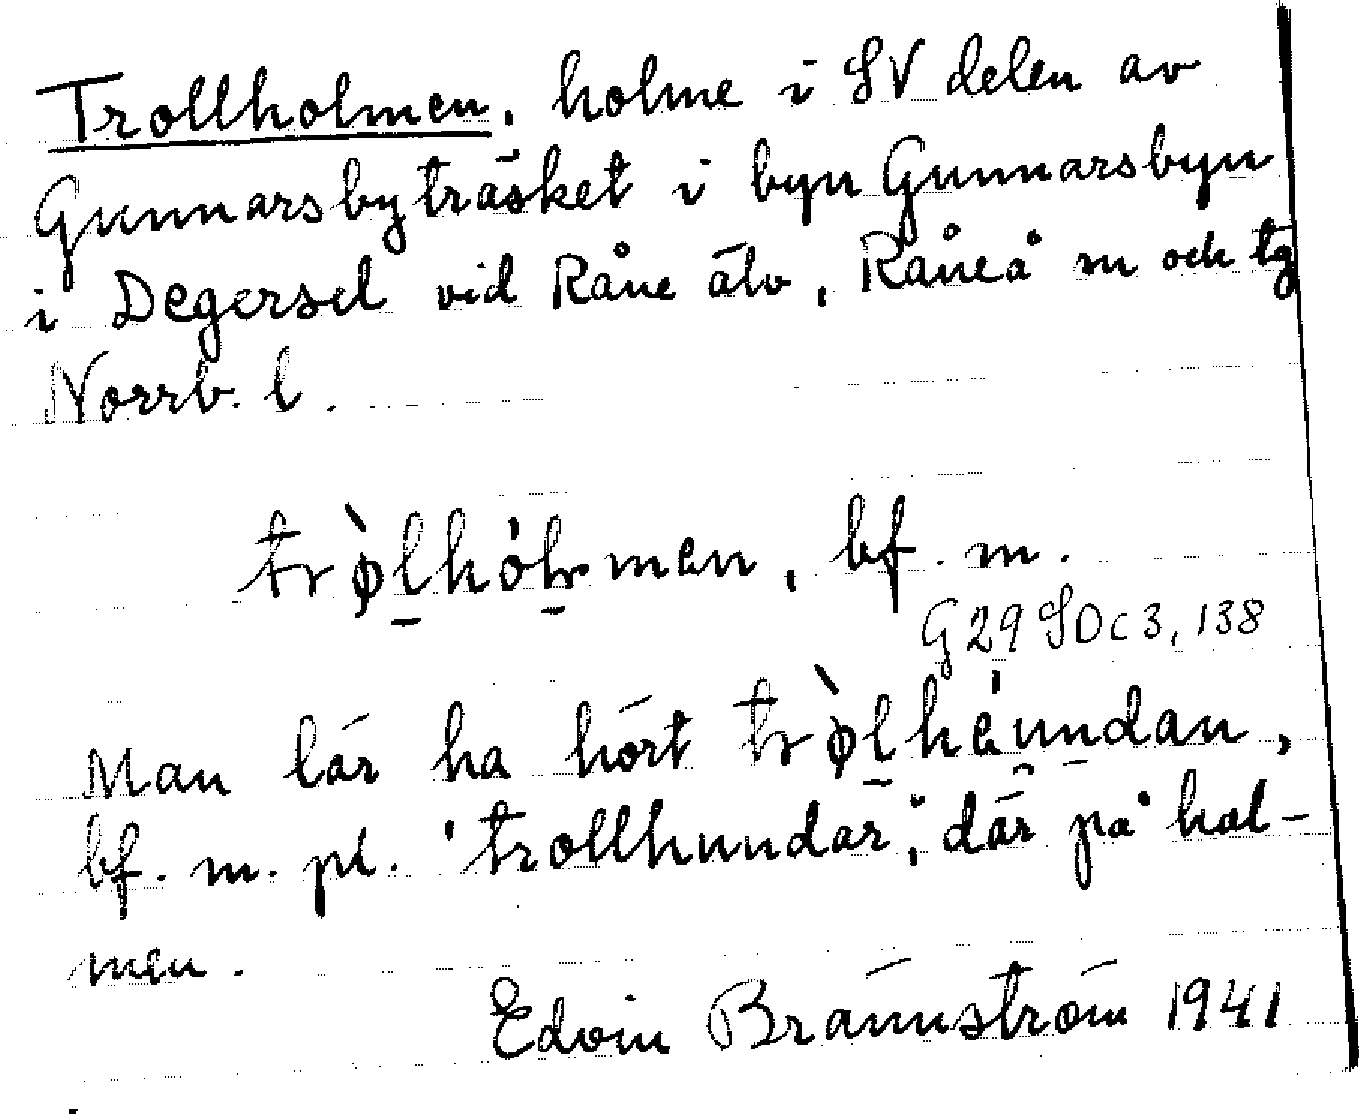 Trollholmen, holme i SV delen av
Gunnarsbyträsket i byn Gunnarsbyn
i Degersel vid Råne älv, Råneå sn och tg
Norrb. l.
bf. m.
G 29 SDc 3, 138
Man lär ha hört
bf. m. pl. 'trollhundar', där på hol-
men.
Edvin Brännström 1941